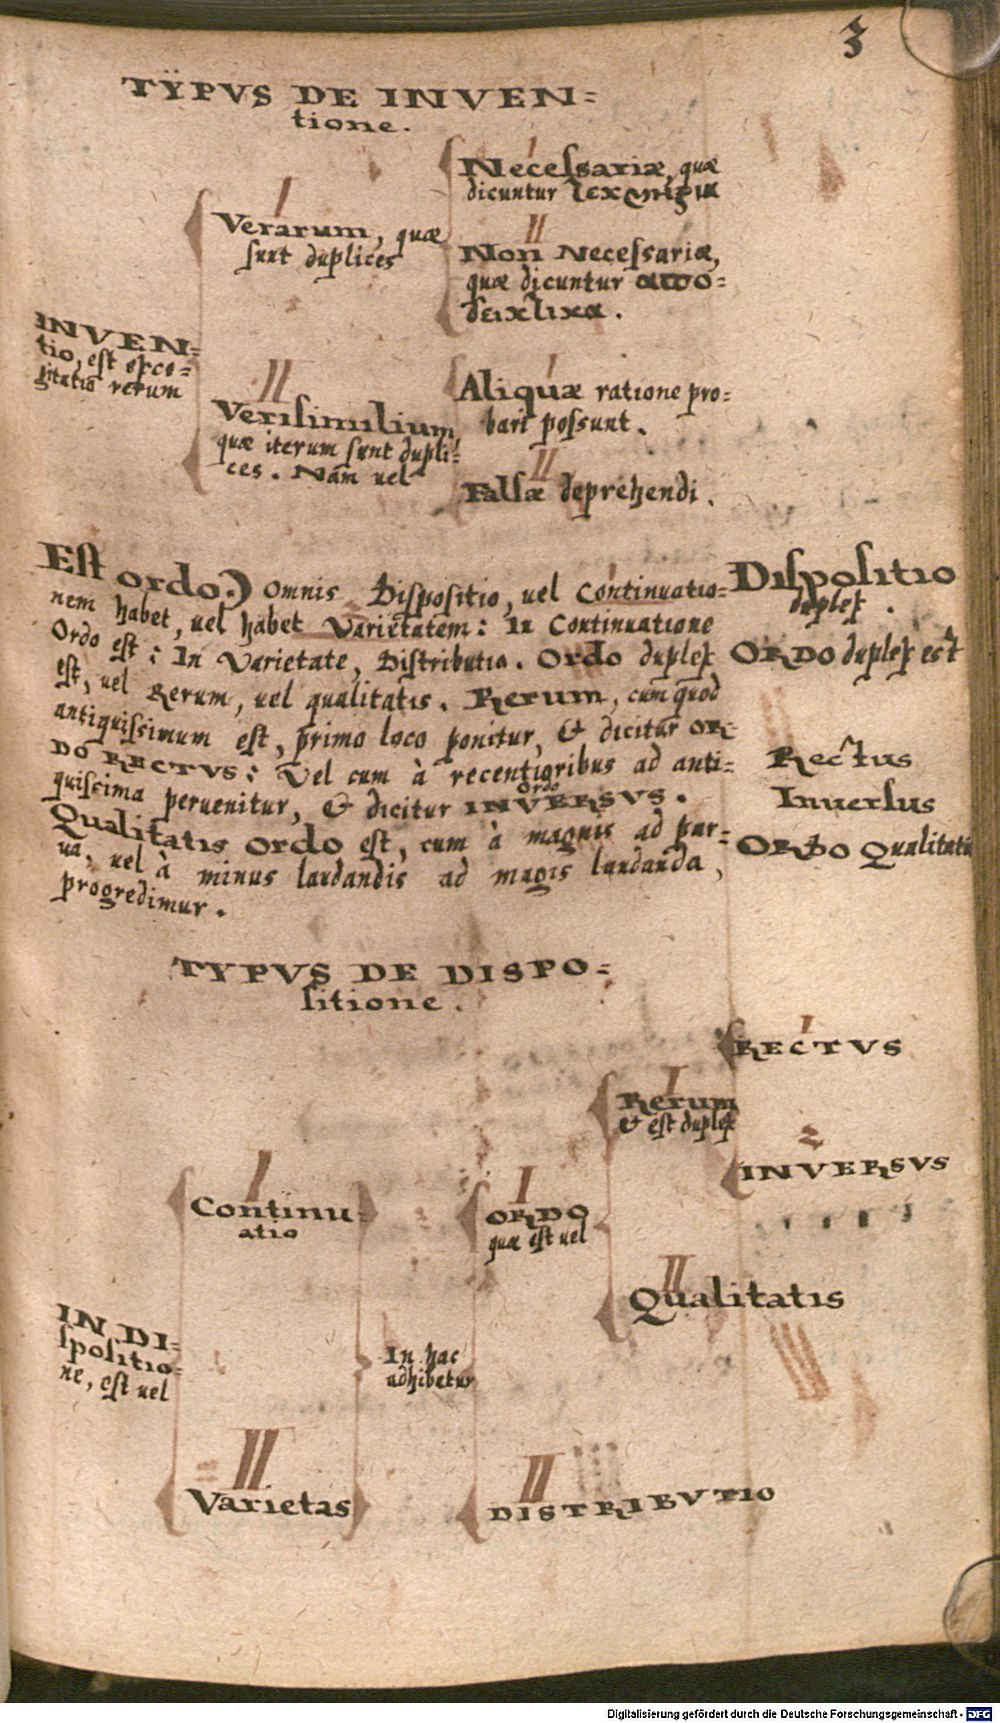 3
TŸPVS DE INVEN=
tione.
I
Neceſsariæ, quæ
dicuntur τεκμήρια
I
Verarum, quæ
ſunt duplices
II
Non Neceſsariæ,
quæ dicuntur ἀπο=
δεικτικα.
INVEN=
tio, eſt exco=
gitatio rerum
II
Veriſimilium,
quæ iterum ſunt dupli=
ces. Nam uel
I
Aliquæ ratione pro=
bari poſsunt.
II
Falſæ deprehendi.
Eſt ordo.) Omnis Diſpoſitio, uel Continuatio=
nem habet, uel habet Varietatem: In Continuatione
Ordo eſt: In Varietate, Diſtributio. Ordo duplex
eſt, uel Rerum, uel qualitatis. Rerum, cum quod
antiquiſsimum eſt, primo loco ponitur, & dicitur OR=
DO RECTVS: Vel cum à recentioribus ad anti=
quiſsima peruenitur, & dicitur Ordo INVERSVS.
Qualitatis Ordo eſt, cum à magnis ad par=
ua, uel à minus laudandis ad magis laudanda,
progredimur.
Diſpoſitio
duplex.
ORDO duplex est
Rectus
Inuerſus
ORDO Qualitatis
TYPVS DE DISPO=
ſitione.
I
RECTVS
I
Rerum
& eſt duplex
2
INVERSVS
I
Continu=
atio
I
ORDO
quæ eſt uel
II
Qualitatis
IN DI=
ſpoſitio=
ne, eſt uel
In hac
adhibetur
II
Varietas
II
DISTRIBVTIO
Digitalisierung gefördert durch die Deutsche Forschungsgemeinschaft - DFG